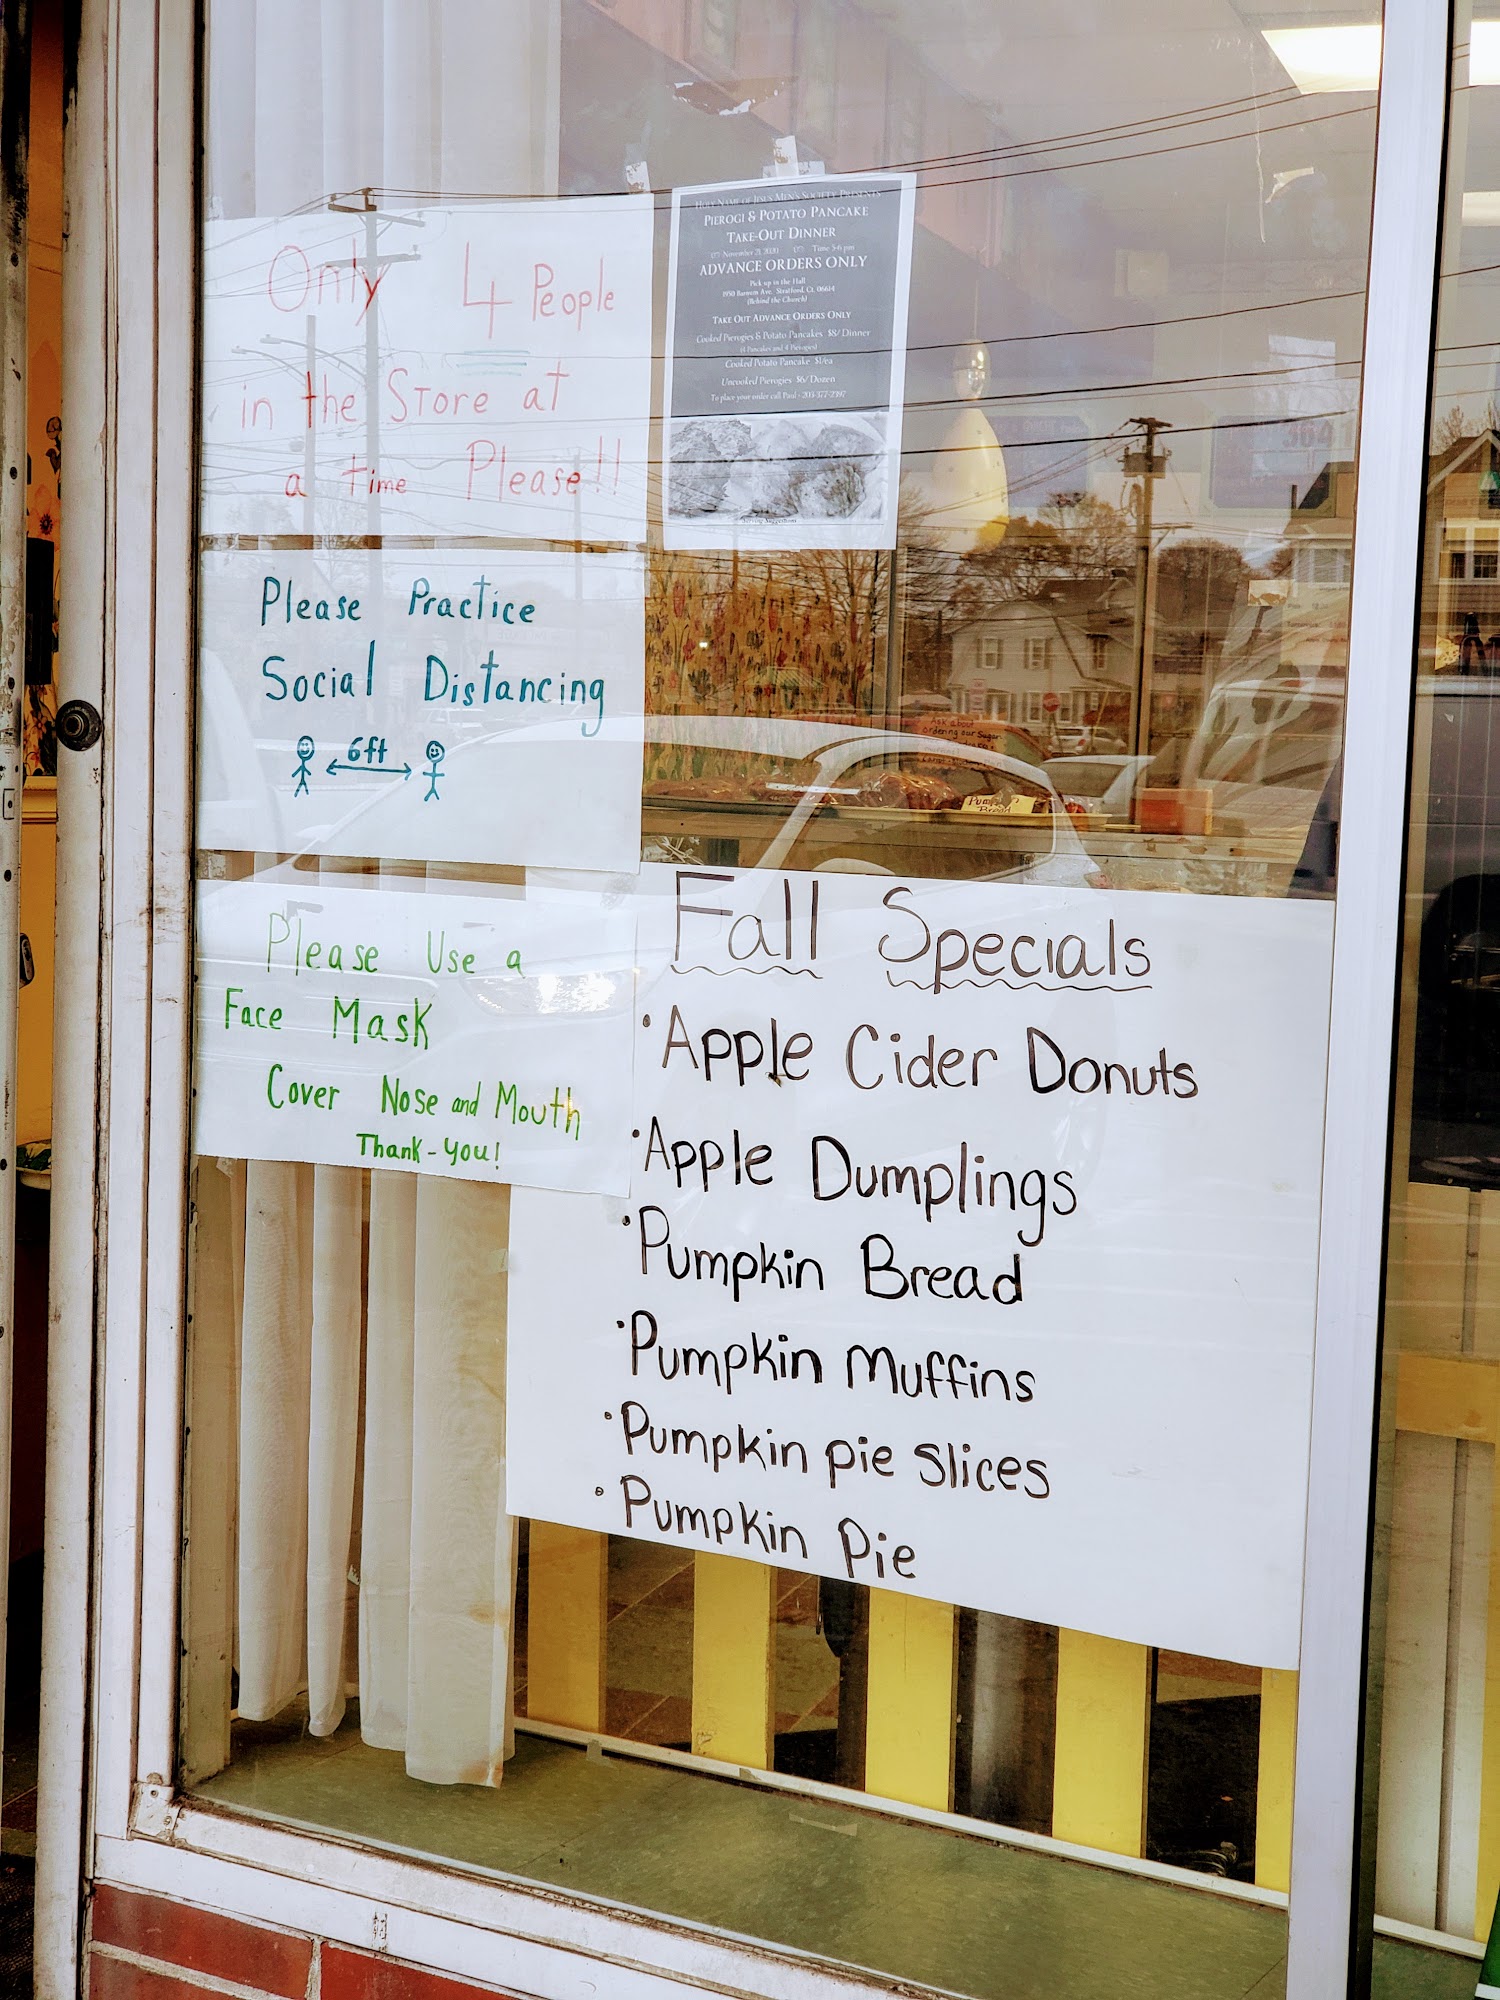 Only 4 People
in the Store at
a time Please!!
Holy Name of Jesus Men's Society Presents
Pierogi & Potato Pancake
Take-Out Dinner
November 21, 2020 Time 3-6 pm
ADVANCE ORDERS ONLY
Pick up in the Hall
1950 Barnum Ave. Stratford, Ct. 06614
(Behind the Church)
Take Out Advance Orders Only
Cooked Pierogies & Potato Pancakes $8/ Dinner
(4 Pancakes and 4 Pierogies)
Cooked Potato Pancake $1/ea
Uncooked Pierogies $6/ Dozen
To place your order call Paul - 203-377-2397
Serving Suggestion
Please Practice
Social Distancing
6ft
Ask about
ordering our Sugar
Bread
Please Use a
Face Mask
Cover Nose and Mouth
Thank-you!
Fall Specials
• Apple Cider Donuts
• Apple Dumplings
• Pumpkin Bread
• Pumpkin Muffins
• Pumpkin pie Slices
• Pumpkin Pie